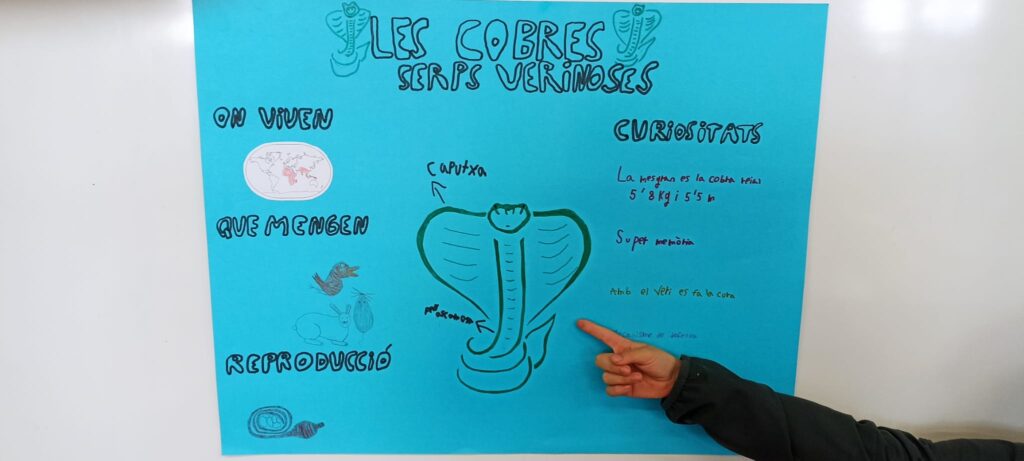 LES COBRES
SERPS VERINOSES
ON VIVEN
QUE MENGEN
REPRODUCCIÓ
CAPUTXA
pell
CURIOSITATS
La mes gran es la cobra reial
5'8 Kg i 5'5 m
Super memòria
Amb el verí es fa la cura